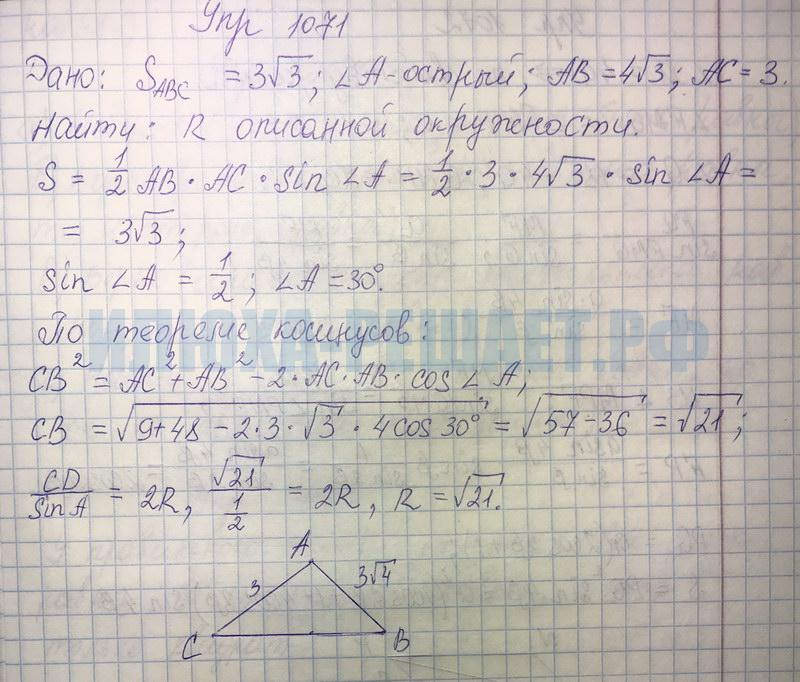 Упр 1071
Дано: S_ABC = 3√3; ∠A-острый; AB = 4√3; AC = 3.
Найти: R описанной окружности.
S = 1/2 AB · AC · sin ∠A = 1/2 · 3 · 4√3 · sin ∠A =
= 3√3;
sin ∠A = 1/2; ∠A = 30°.
По теореме косинусов:
ИЛЮХА-РЕШАЕТ.РФ
CB² = AC² + AB² - 2 · AC · AB · cos ∠A;
CB = √(9+48 - 2·3·√3 · 4cos 30°) = √(57-36) = √21;
CD/sin A = 2R, √21/(1/2) = 2R, R = √21.
A
3
3√4
C
B